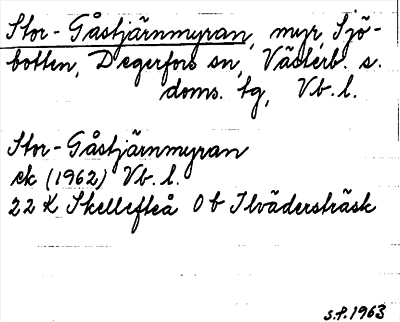 Stor-Gåstjärnmyran, myr, Sjö-
botten, Degerfors sn, Västerb. s.
doms. tg, Vb. l.
Stor-Gåstjärnmyran
ek (1962) Vb. l.
22 K Skellefteå 0 b Ilvädersträsk
S.P. 1963